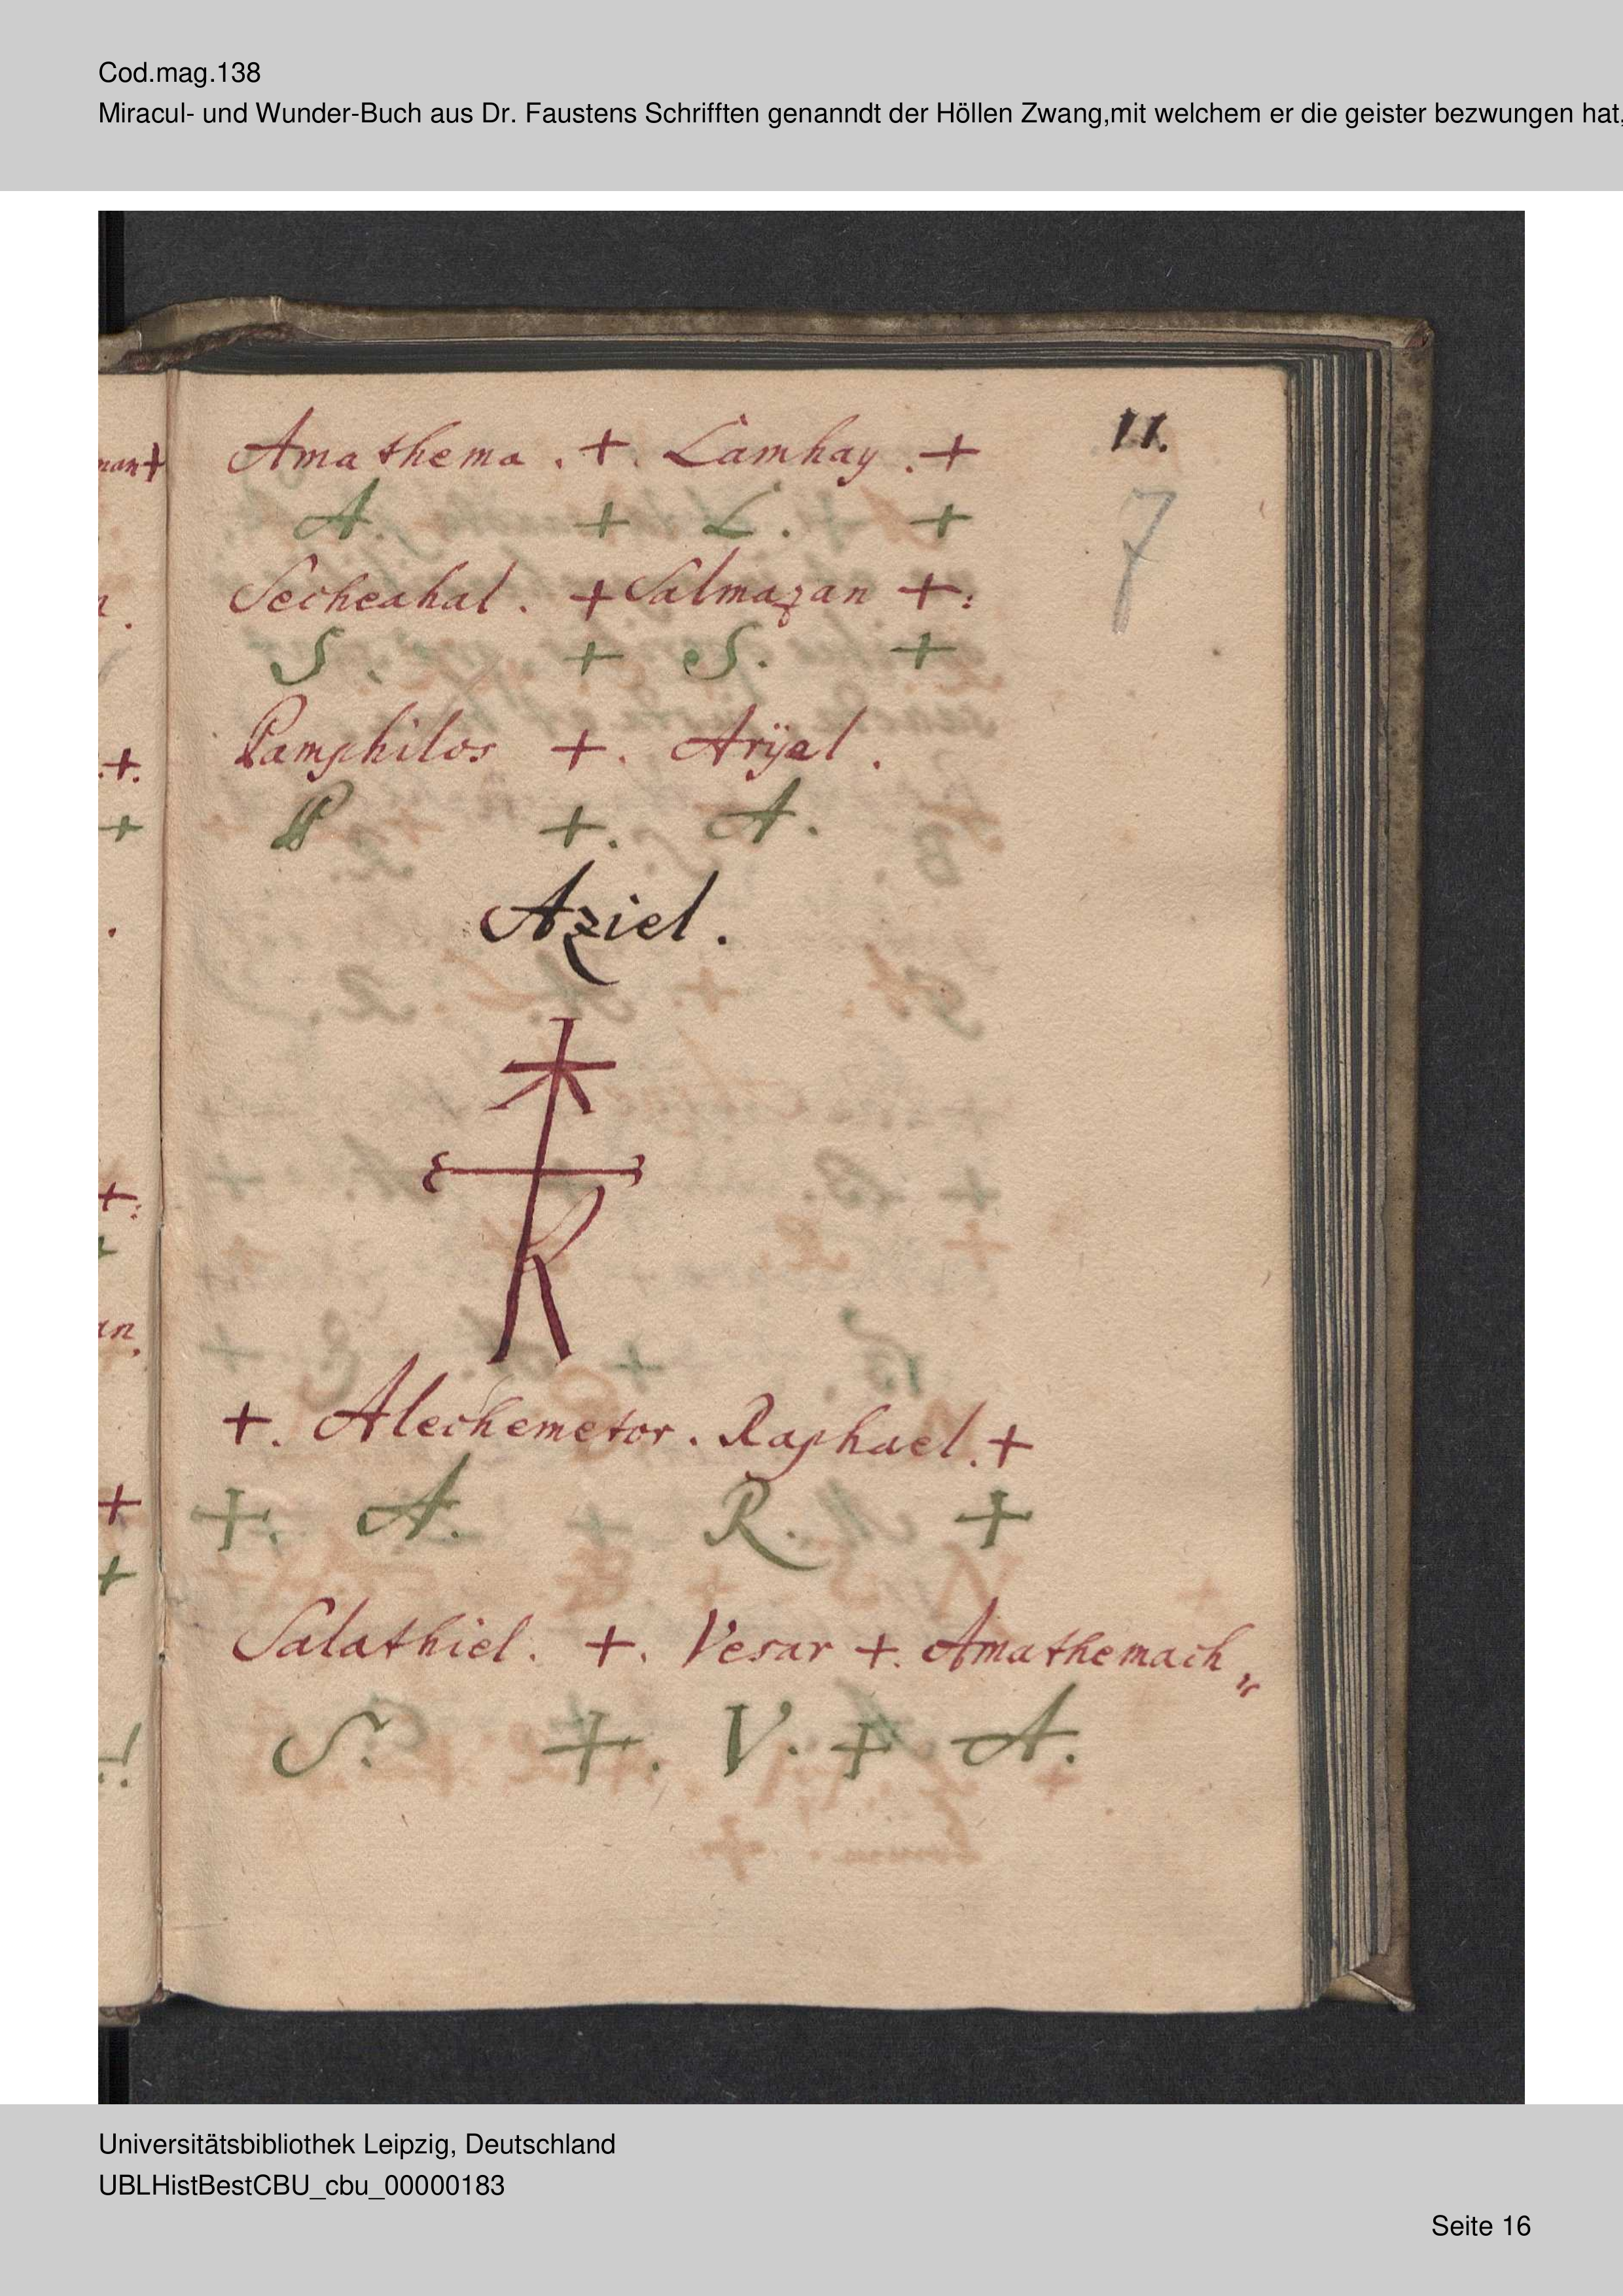 Cod.mag.138
Miracul- und Wunder-Buch aus Dr. Faustens Schrifften genanndt der Höllen Zwang,mit welchem er die geister bezwungen hat,
11.
7
Amathema . +. Lamhay . +
A. + L. +
Secheahal. + Salmazan +:
S. + S. +
Pamphilos +. Arÿel.
P +. A.
Aziel.
+. Alechemetor. Raphael. +
+. A. R. +
Salathiel. +. Vesar +. Amathemach„
S. +. V. + A.
Universitätsbibliothek Leipzig, Deutschland
UBLHistBestCBU_cbu_00000183
Seite 16